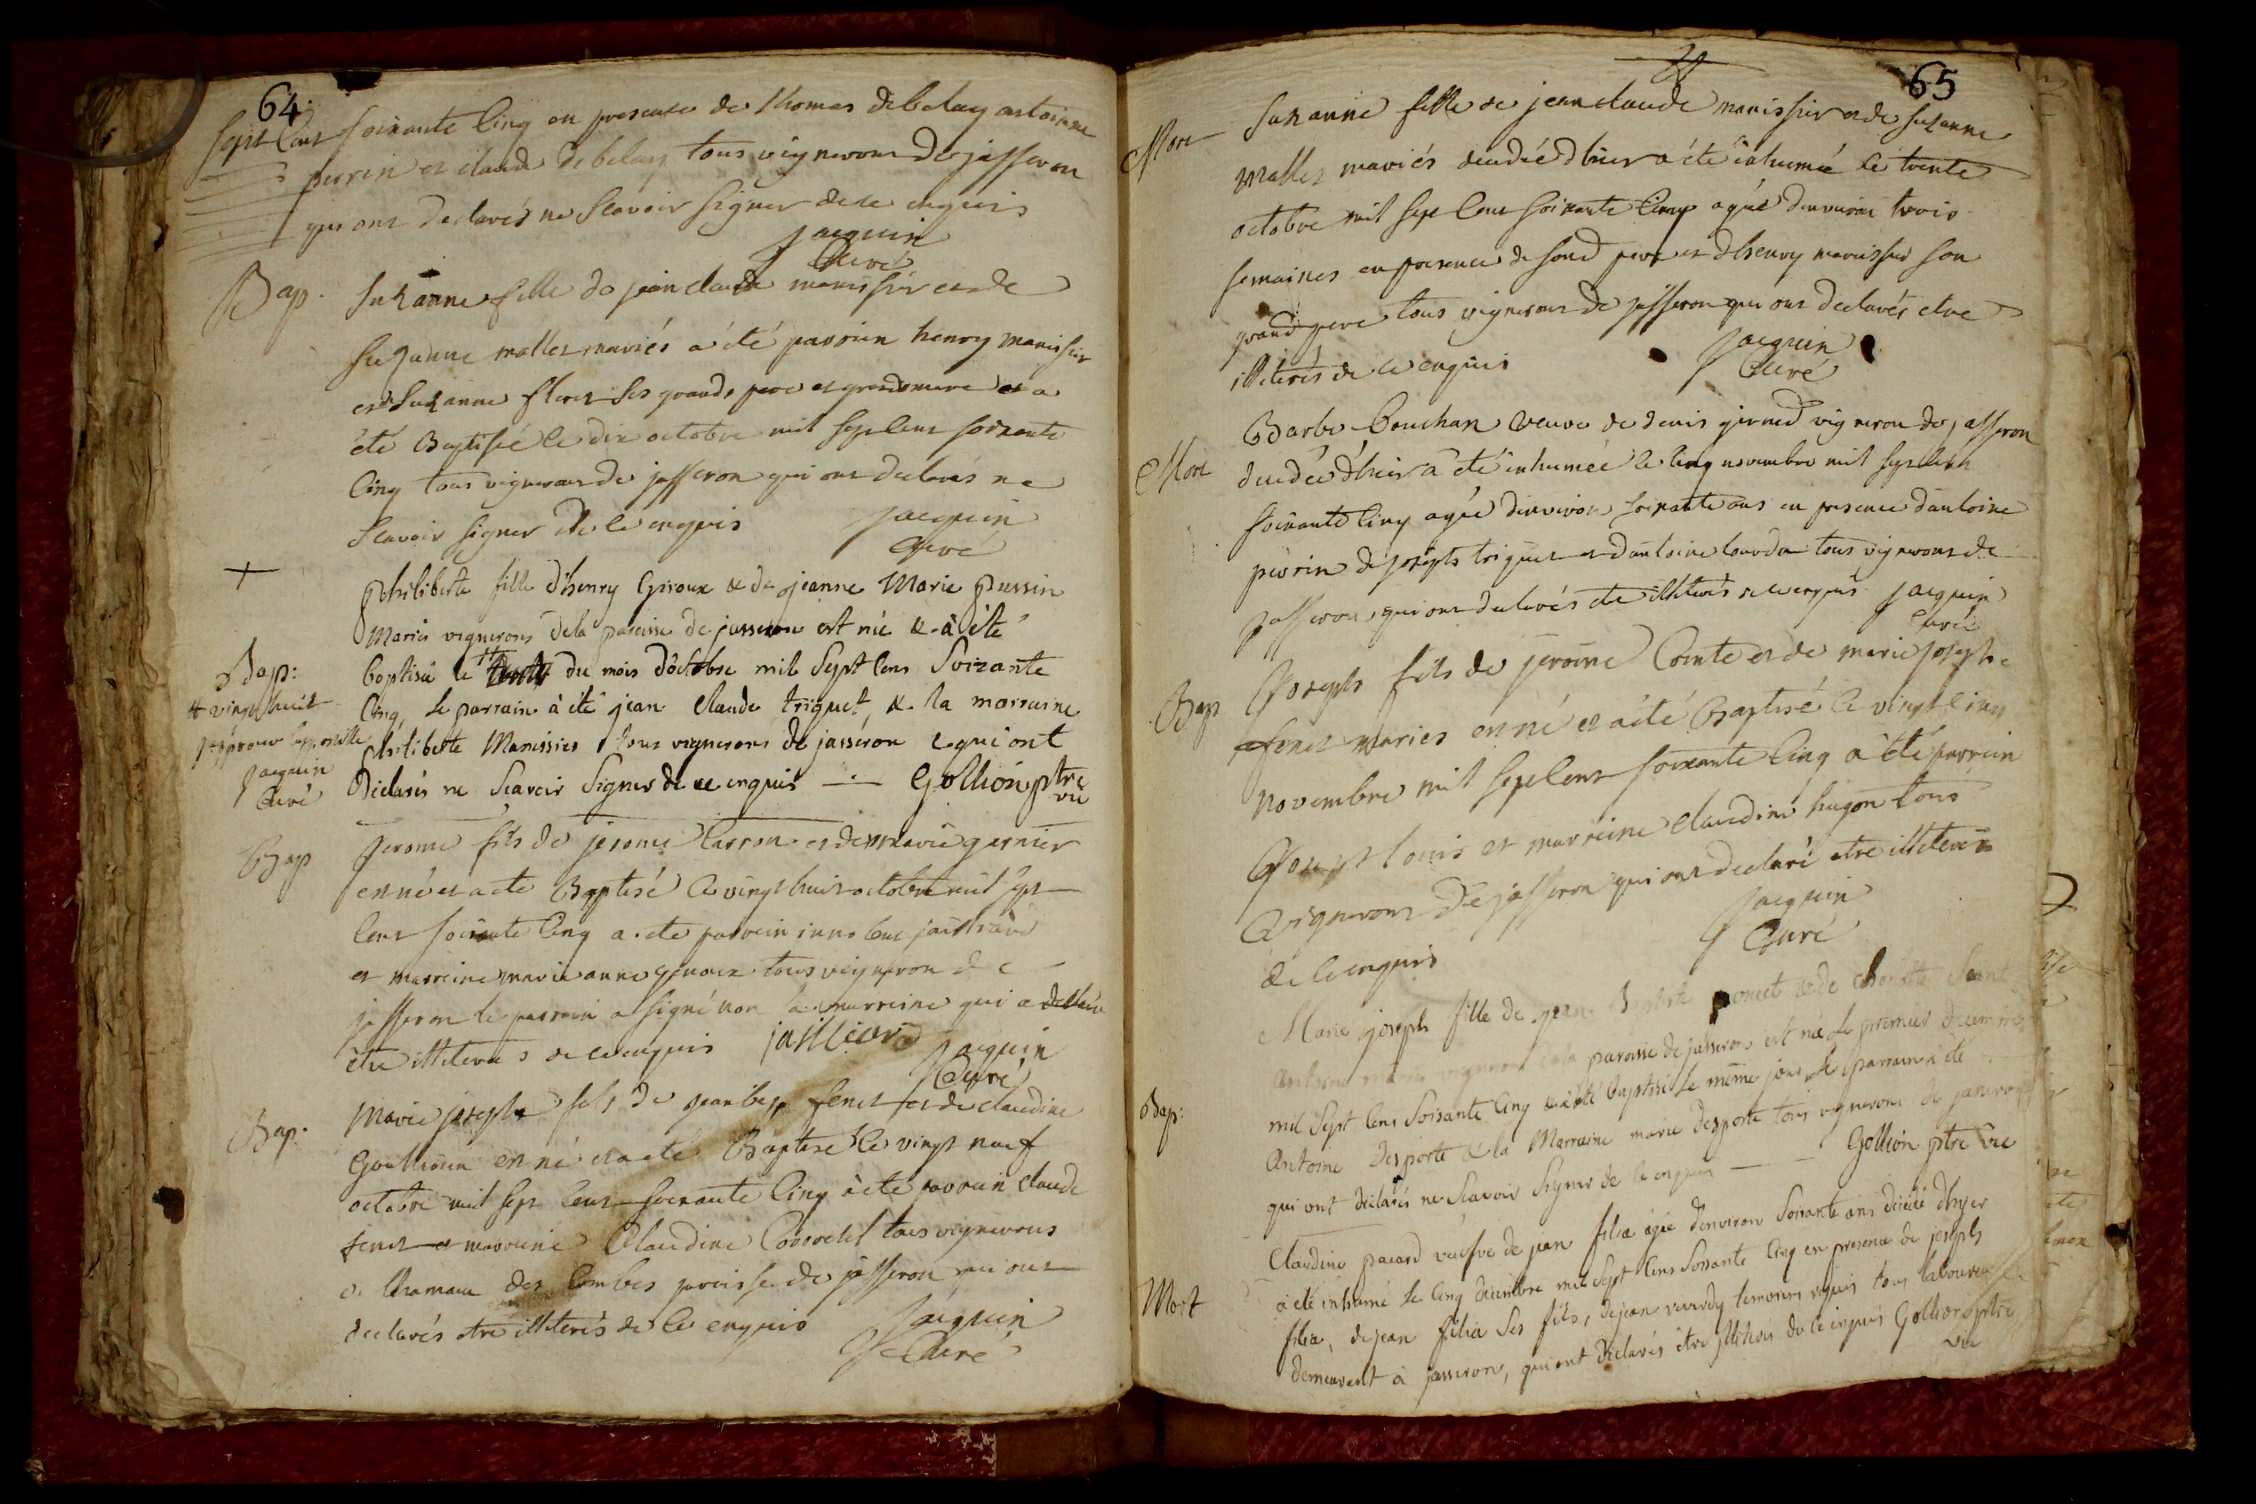 64.
sept cent soixante cinq en presence de thomas debelay antoine
perrin et claude debelay tous vignerons de jasseron
qui ont declarés ne scavoir signer de ce enquis
jacquin
curé
Bap. Suzanne fille de jean claude manissier et de
Suzanne mallet mariés a été parrein henry manissier
et Suzanne ses grands pere et grandmere et a
été Baptisée le dix octobre mil sept cent soixante
cinq tous vignerons de jasseron qui ont declarés ne
scavoir signer de ce enquis jacquin
curé
+
philiberte fille d'henry Giroux & de jeanne Marie perrin
Mariés vignerons dela paroisse de jasseron est née & à été
Bap: baptisée le # du mois d'octobre mil Sept cens Soixante
# vingt huit
cinq, le parrain à été jean Claude triguet, & la marraine
approuvé l'apostille
philiberte Manissier tous vignerons de jasseron & qui ont
jacquin
curé
Déclarés ne Scavoir Signer de ce enquis — Gollion ptre
vic
Bap jerome fils de jerome carron et de marie garnier
est né et a ete Baptisé le vingt huit octobre mil sept
cent soixante cinq a ete parrein
et marreine marie anne tous vigneron de
jasseron le parrain a signé non la marreine qui a declaré
etre illiterés de ce enquis jaillard
jacquin
curé
Bap. Marie joseph fils de jean bap. feret et de claudine
est né et a eté Baptisé le vingt neuf
octobre mil sept cent soixante cinq à eté parrein claude
feret et marreine Claudine tous vignerons
du hamau des combes paroisse de jasseron qui ont
declarés etre illiterés de ce enquis jacquin
curé
65
Mort Suzanne fille de jean claude manissier et de suzanne
Mallet mariés decedée d'hier a été inhumée le trente
octobre mil sept cent soixante cinq agée d'environ trois
semaines en presence de son pere et d'henry manissier son
grand pere tous vignerons de jasseron qui ont declarés etre
illiterés de ce enquis jacquin
curé
Mort Barbe Bouchan veuve de denis vigneron de jasseron
decedée d'hier a été inhumée le cinq novembre mil sept cent
soixante cinq agée d'environ soixante ans en presence d'antoine
perrin de joseph triguet et d'antoine tous vignerons de
jasseron qui ont declarés etre illiterés de ce enquis jacquin
curé
Bap joseph fils de jerome Comte et de marie joseph
feret mariés est né et a été Baptisé le vingt cinq
novembre mil sept cent soixante cinq a été parrein
joseph louis et marreine claudine hugon tous
vignerons de jasseron qui ont declaré etre illiterés
de ce enquis jacquin
curé
Marie joseph fille de jean Baptiste poncet & de
Antoine mariés vignerons dela paroisse de jasseron est née le premier decembre
Bap: mil Sept cens Soixante cinq & à été baptisée le même jour, le parrain à été
Antoine Desporte & la Marraine marie desporte tous vignerons de jasseron
qui ont déclarés ne Scavoir Signer de ce enquis — Gollion ptre vic
Claudine pacard veufve de jean filia agée d'environ Soixante ans décédée d'hyer
Mort à été inhumé le cinq décembre mil Sept cens Soixante cinq en presence de joseph
filia, de jean filia Ses fils, de jean temoins réquis tous laboureurs
demeurant à jasseron, qui ont déclarés être de ce enquis Gollion ptre
vic